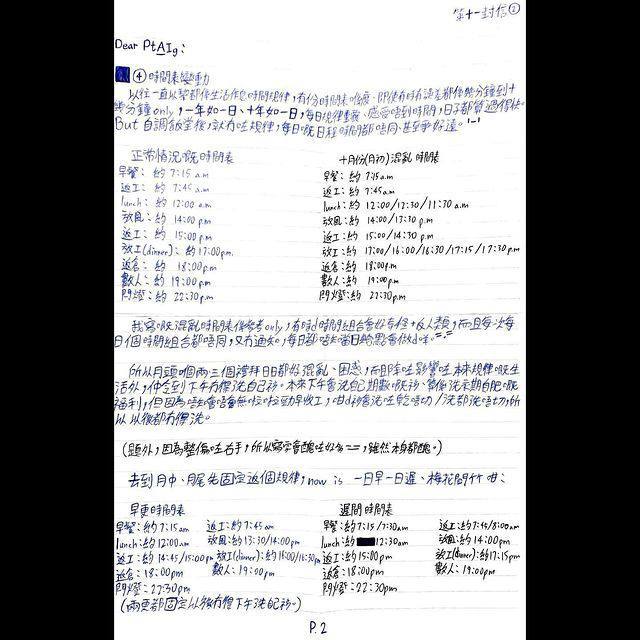 第十一封信②
Dear PtAIg：
④時間表變動
以往一直以黎都係生活作息時間規律，有份時間表喺度，即使有時有誤差都係幾分鐘到十
幾分鐘only，一年如一日、十年如一日，每日規律重複、感受唔到時間，日子都會過得快。
But 自調飯堂後，就冇咗規律，每日嘅日程時間都唔同，甚至爭好遠。
正常情況嘅時間表
早餐：約 7:15 a.m
返工：約 7:45 a.m
lunch：約 12:00 a.m
放風：約 14:00 p.m
返工：約 15:00 p.m
放工(dinner)：約 17:00 p.m.
返倉：約 18:00 p.m
數人：約 19:00 p.m
閂燈：約 22:30 p.m
十月份(月初)混亂時間表
早餐：約 7:15 a.m
返工：約 7:45 a.m
lunch：約 12:00/12:30/11:30 a.m
放風：約 14:00/13:30 p.m
返工：約 15:00/14:30 p.m
放工：約 17:00/16:00/16:30/17:15/17:30 p.m
返倉：約 18:00 p.m
數人：約 19:00 p.m
閂燈：約 22:30 p.m
我寫嘅混亂時間表係參考only，有時d時間組合會好奇怪，反人類，而且每次每
日個時間組合都唔同，又冇通知，每日都唔知當日跟住會做d咩。=.=
所以月頭嗰兩三個禮拜日日都好混亂、困惑，而且除咗影響咗本來規律嘅生
活外，仲令到下午冇得洗自己衫。本來下午會洗自己期數嘅衫、當係洗衣期自肥嘅
福利，但因為
所
以以後都冇得洗。
(題外，因為整傷咗右手，所以寫字會醜咗好多==，雖然本身都醜。)
去到月中、月尾先固定返個規律，now is 一日早一日遲、梅花間竹咁：
早更時間表
早餐：約7:15am 返工：約7:45am
lunch：約12:00am 放風：約13:30/14:00pm
返工：約14:45/15:00pm 放工(dinner)：約16:00/16:30pm
返倉：18:00pm 數人：19:00pm
閂燈：22:30pm
遲間時間表
早餐：約7:15/7:30am 返工：約7:45/8:00am
lunch：約 12:30am 放風：約14:00pm
返工：約15:00pm 放工(dinner)：約17:15pm
返倉：18:00pm 數人：19:00pm
閂燈：22:30pm
(兩更都固定以後冇得下午洗自己衫。)
P.2